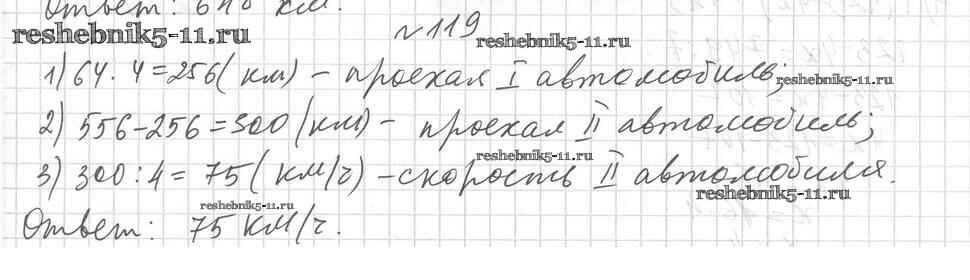 Ответ: 648 км.
reshebnik5-11.ru
№119
reshebnik5-11.ru
1) 64·4=256(км) – проехал I автомобиль;
reshebnik5-11.ru
2) 556-256=300(км) – проехал II автомобиль;
reshebnik5-11.ru
3) 300:4= 75(км/ч) – скорость II автомобиля.
reshebnik5-11.ru
reshebnik5-11.ru
Ответ: 75 км/ч.